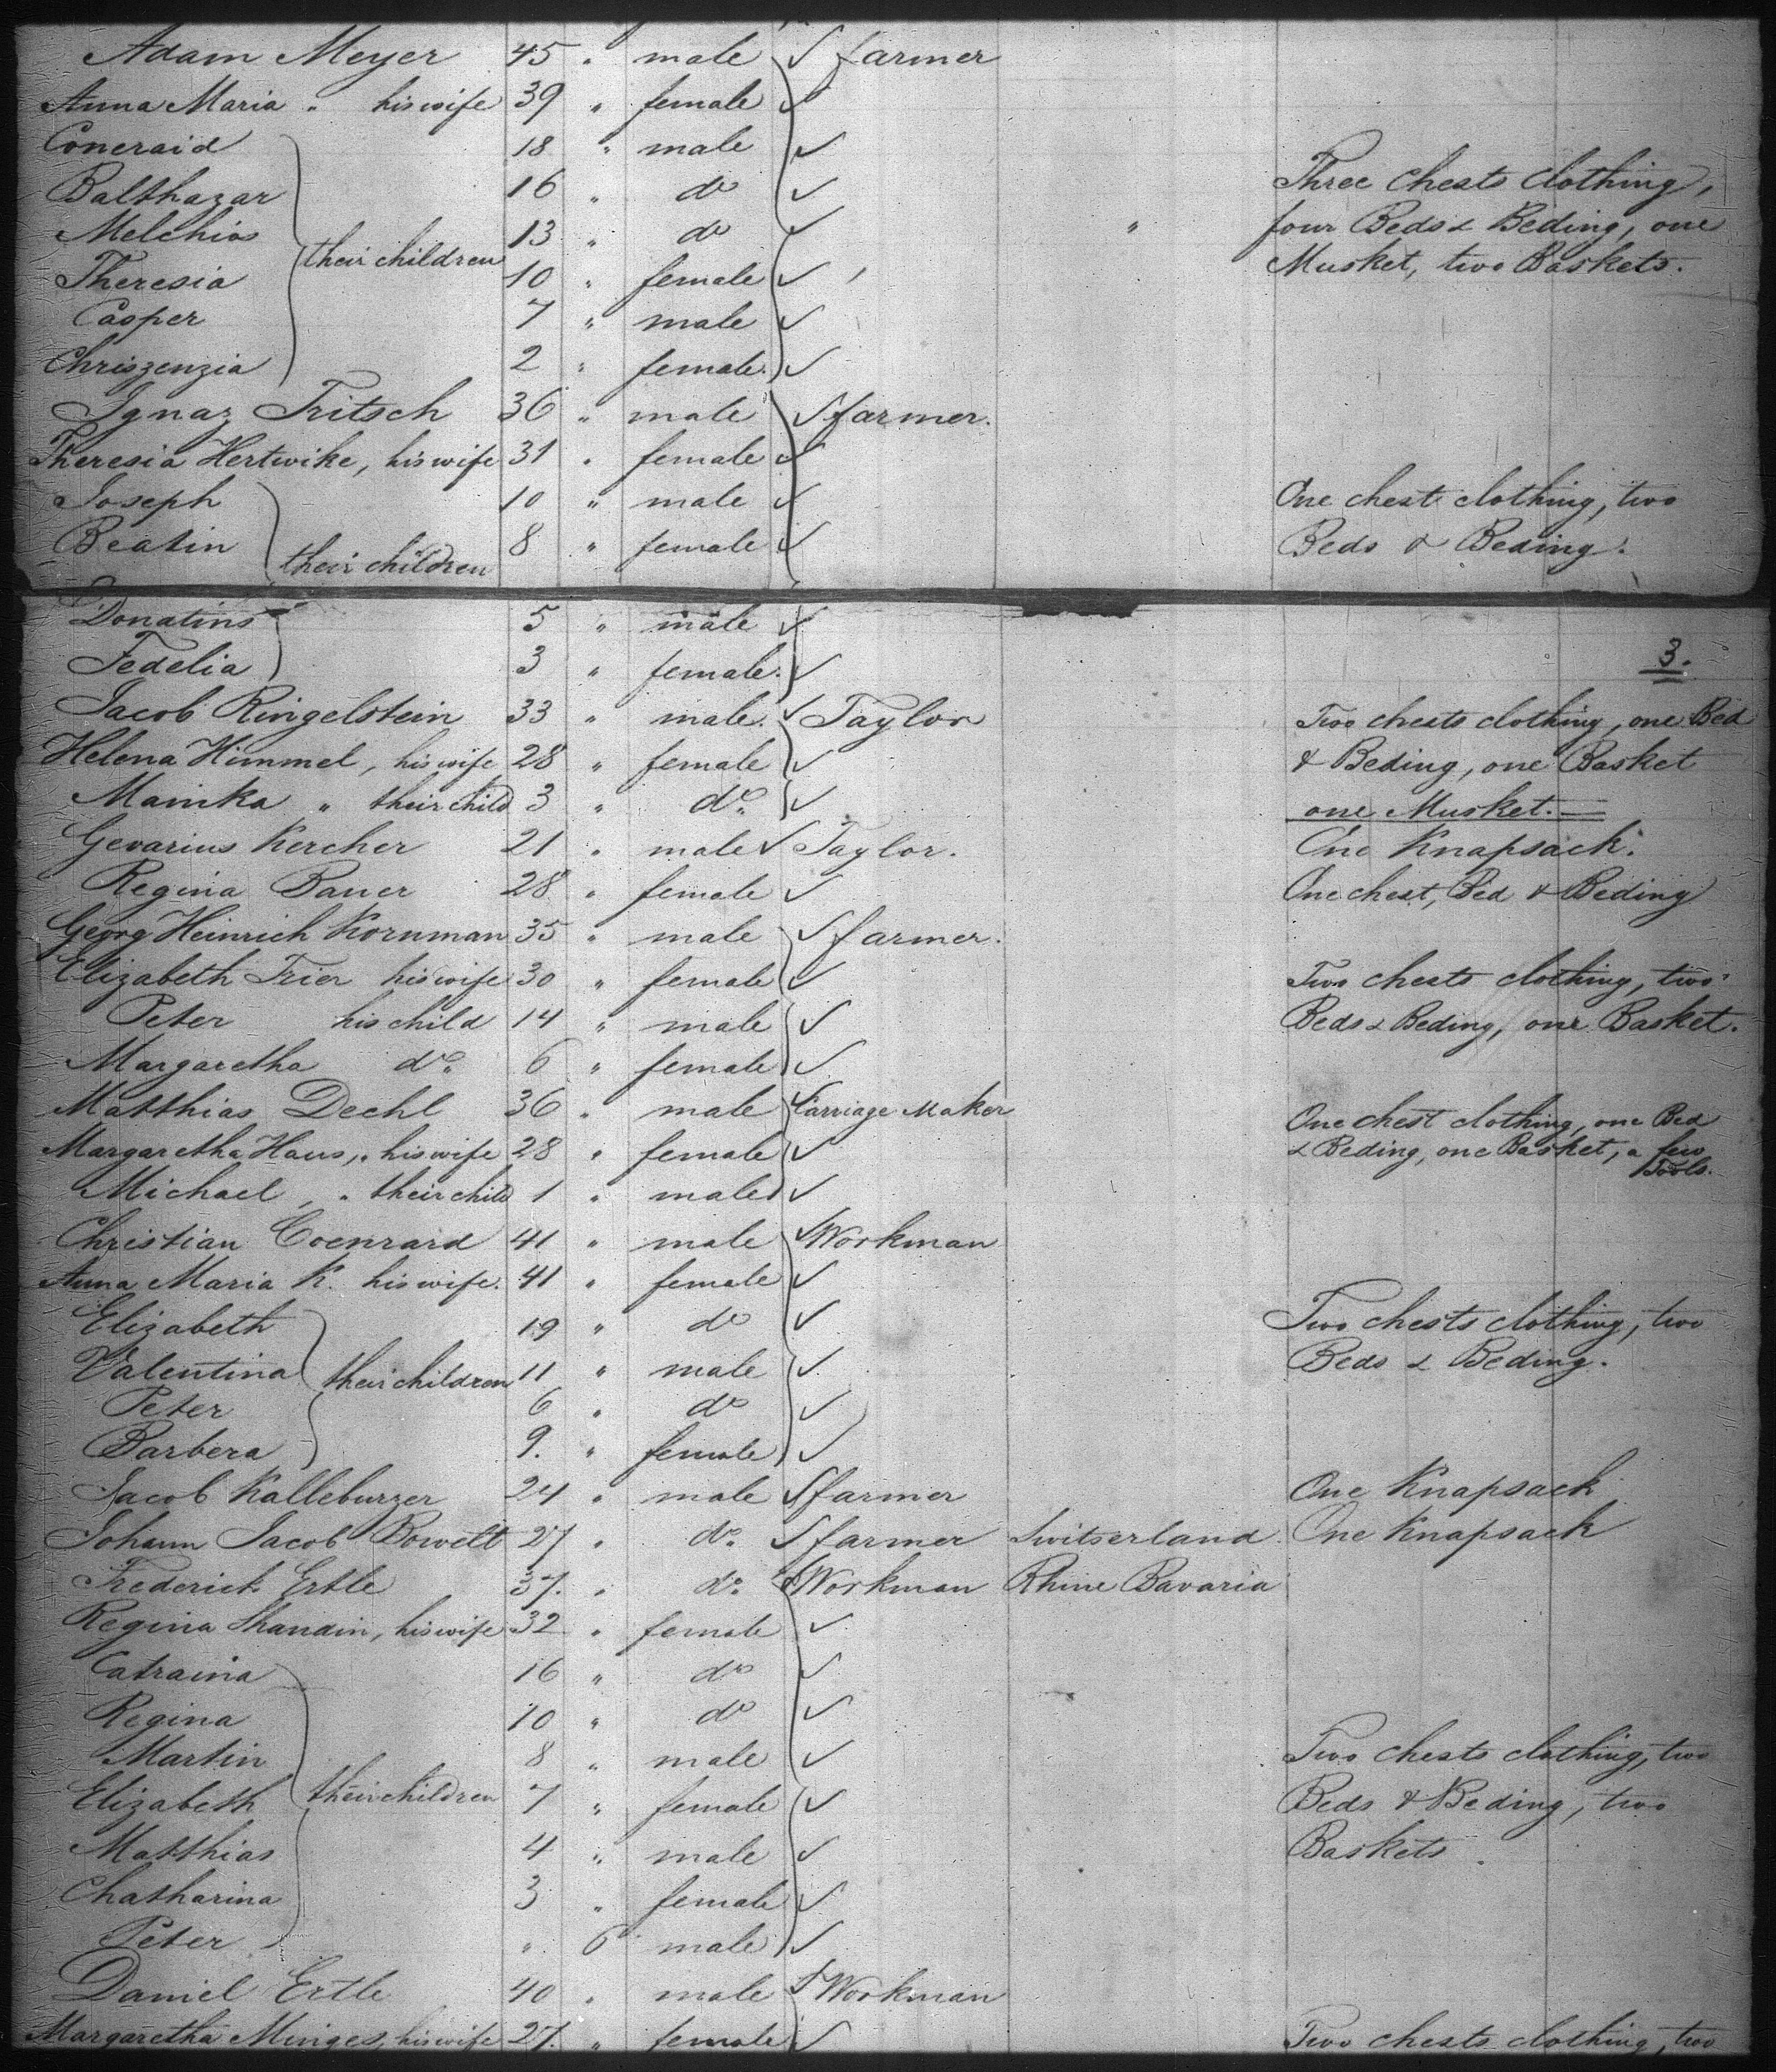 Adam Meyer 45 " male ✓ farmer
Anna Maria " his wife 39 " female ✓
Coneraid 18 " male ✓
Balthazar 16 " do ✓ Three Chests Clothing,
Melchios 13 " do ✓ " four Beds & Beding, one
their children
Theresia 10 " female ✓ Musket, two Baskets.
Casper 7 " male ✓
Chriszenzia 2 " female. ✓
Ignaz Fritsch 36 " male ✓ farmer.
Theresia Hertwike, his wife 31 " female ✓
Joseph 10 " male ✓ One chest clothing, two
Beatin 8 " female ✓ Beds & Beding.
their children
Donatins 5 " male ✓
Fedelia 3 " female. ✓ 3.
Jacob Ringelstein 33 " male. ✓ Taylor Two chests clothing, one Bed
Helena Himmel, his wife 28 " female ✓ & Beding, one Basket
Mainka " their child 3 " do. ✓ one Musket.
Gevarius Kercher 21 " male ✓ Taylor. One Knapsack.
Regina Bauer 28 " female ✓ One chest, Bed & Beding
Georg Heinrich Kornman 35 " male ✓ farmer.
Elizabeth Trier his wife 30 " female ✓ Two chests clothing, two
Peter his child 14 " male ✓ Beds & Beding, one Basket.
Margaretha do. 6 " female ✓
Matthias Dechl 36 " male ✓ Carriage Maker One chest clothing, one Bed
Margaretha Haus, " his wife 28 " female ✓ & Beding, one Basket, a few
Tools.
Michael, " their child 1 " male ✓
Christian Coenrard 41 " male ✓ Workman
Anna Maria K. his wife. 41 " female ✓
Elizabeth 19 " do ✓ Two chests clothing, two
Valentina their children 11 " male ✓ Beds & Beding.
Peter 6 " do ✓
Barbera 9. " female ✓
Jacob Kalleburzer 24 " male ✓ farmer One Knapsack
Johann Jacob Bowelt 27 " do. ✓ farmer Switserland. One Knapsack
Frederich Ertle 37. " do. ✓ Workman Rhine Bavaria
Regina Shandin, his wife 32 " female ✓
Catraina 16 " do ✓
Regina 10 " do ✓
Martin 8 " male ✓ Two chests clothing, two
Elizabeth their children 7 " female ✓ Beds & Beding, two
Matthias 4 " male ✓ Baskets
Chatharina 3 " female ✓
Peter " 6 male ✓
Daniel Ertle 40 " male ✓ Workman
Margaretha Minges, his wife 27. " female ✓ Two chests clothing, two